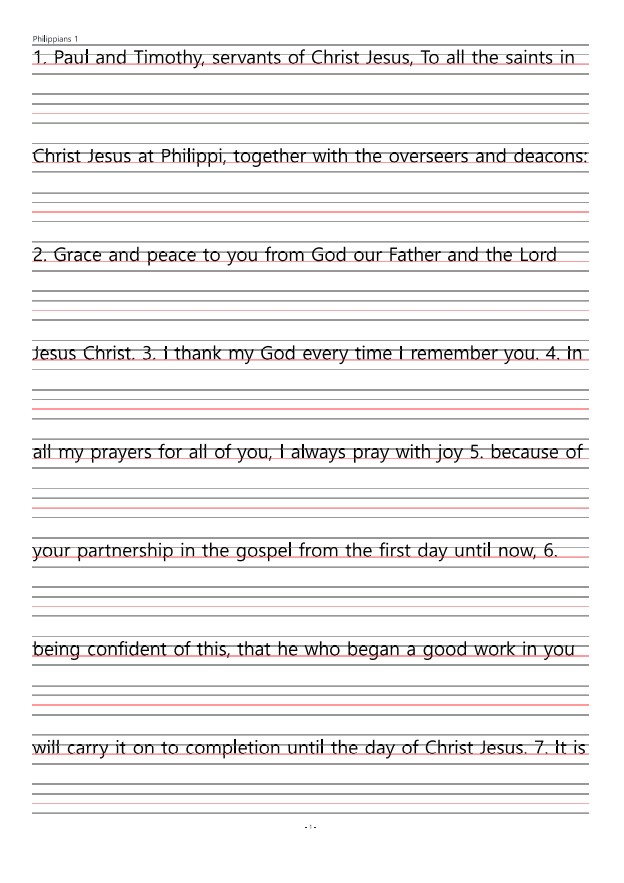 Philippians 1
1. Paul and Timothy, servants of Christ Jesus, To all the saints in
Christ Jesus at Philippi, together with the overseers and deacons:
2. Grace and peace to you from God our Father and the Lord
Jesus Christ. 3. I thank my God every time I remember you. 4. In
all my prayers for all of you, I always pray with joy 5. because of
your partnership in the gospel from the first day until now, 6.
being confident of this, that he who began a good work in you
will carry it on to completion until the day of Christ Jesus. 7. It is
- 1 -